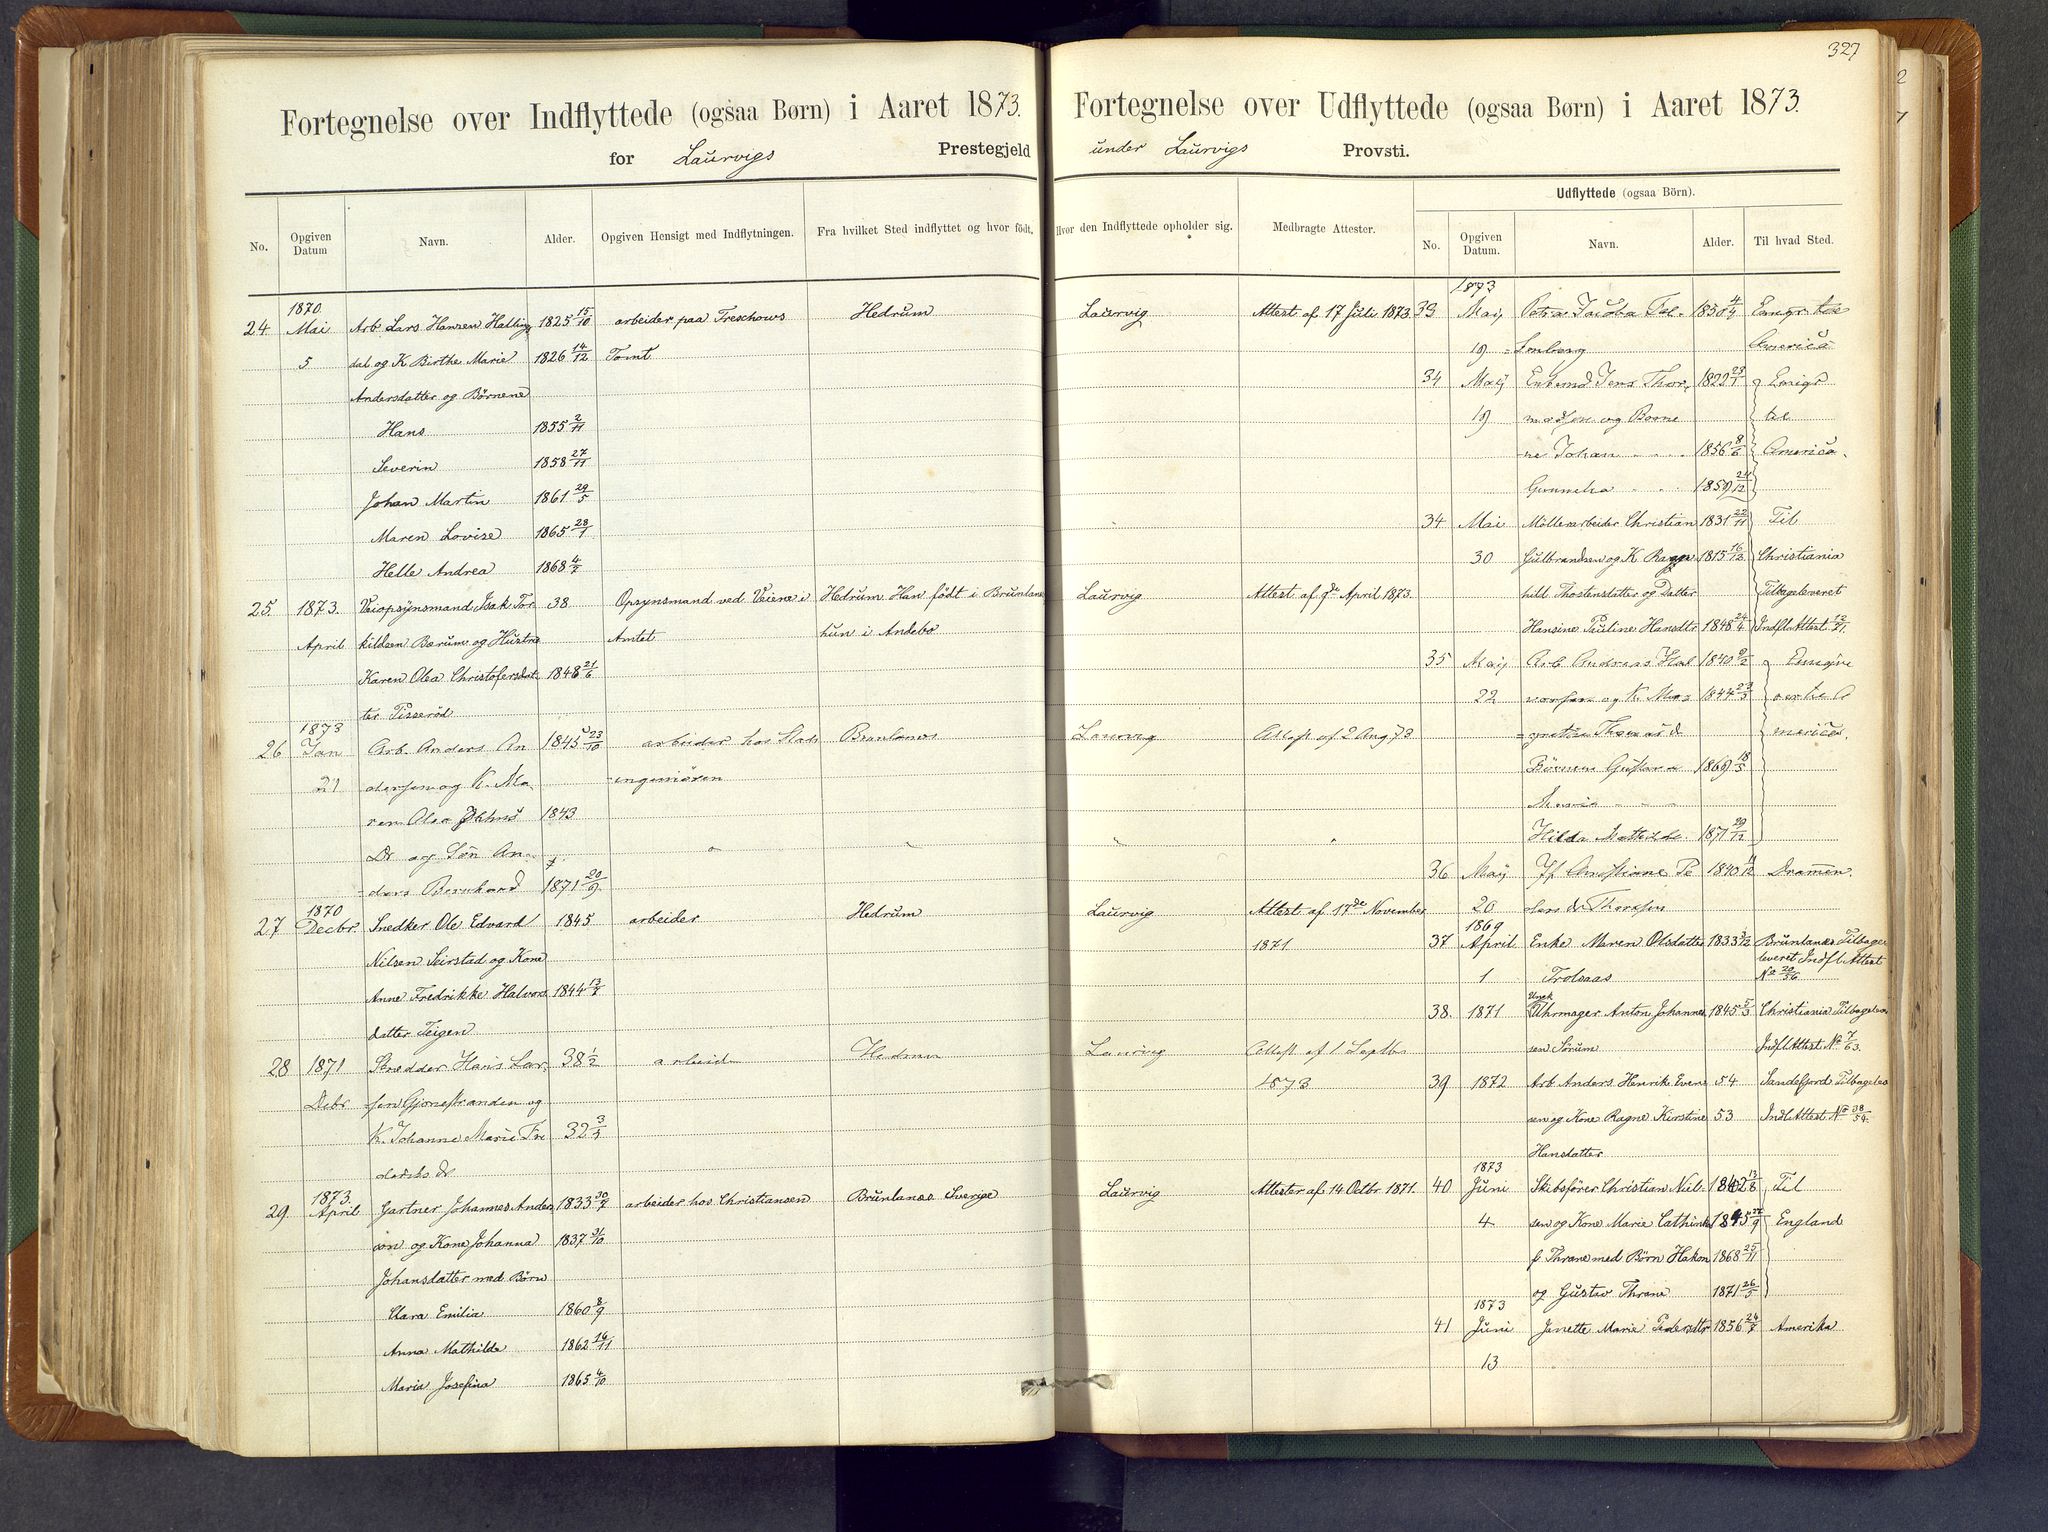 327
Fortegnelse over Indflyttede (ogsaa Børn) i Aaret 1873.
for Laurvigs Prestegjeld
No.
Opgiven Datum
Navn.
Alder.
Opgiven Hensigt med Indflytningen.
Fra hvilket Sted indflyttet og hvor født.
1870
24 Mai Arb Lars Hansen Halling 1825 15/10 arbeider paa Treschows Hedrum
5 dal og K Birthe Marie 1826 14/12 Tomt
Andersdatter og Børnene
Hans 1855 2/11
Severin 1858 27/11
Johan Martin 1861 29/5
Maren Lovise 1865 28/1
Helle Andrea 1868 4/7
25. 1873. Veiopsynsmand Isak Tor 38 Opsynsmand ved Veiene i Hedrum Han født i Brunlanes
April kildsen Bærum og Hustru Amtet hun i Andebo
Karen Olea Christofersdat 1848 21/6
ter Tisserød
1873
26 Jan Arb. Anders An 1845 23/10 arbeider hos Stads Brunlanes
21 dersen og K. Ma ingeniøren
ren Olea 1843
Dr og Søn An
ders Bernhard 1871 20/9
1870
27 Decbr. Snedker Ole Edvard 1845 arbeider Hedrum
Nilsen Seirstad og Kone
Anne Fredrikke Halvors 1844 13/7
datter Teigen
28 1871 Skredder Hans Lar 38 1/2 arbeid Hedrum
Debr sen Gjonestranden og
K. Johanne Marie Fre 32
deriks dr
1873.
29. April Gartner Johannes Anders 1833 30/7 arbeider hos Christiansen Brunlanes Sverige
son og Kone Johanna 1837 31/10
Johansdatter med Børn
Clara Emilia 1860 8/9
Anna Mathilde 1862 16/11
Maria Josefina 1865 4/10
Fortegnelse over Udflyttede (ogsaa Børn) i Aaret 1873.
under Laurvigs Provsti.
Hvor den Indflyttede opholder sig.
Medbragte Attester.
Udflyttede (ogsaa Börn).
No.
Opgiven Datum.
Navn.
Alder.
Til hvad Sted.
1873
Laurvig Attest af 17 Juli 1873. 33 Maij Petra Jacoba 1850 4/4 Emigr. til
19 America
34 Maij Enkemd Jens Thor 1822 23/1 Emigr
19 madsen og Børne til
ne Johan 1856 8/6 America.
1859 24/12
34 Mai Möllerarbeider Christian 1831 22/11 Til
30 Gulbrandsen og K Ragn 1815 16/12 Christiania
Laurvig Attest af April 1873. hild Thostensdatter og Datter Tilbageleveret
Hansine Pauline Hansdtr 1848 24/4 Indfl Attest 12/71.
35 Maij Arb Andreas Hal 1840 9/2 Emigre
22 vorsen og K. Mar 1844 23/3 ver til A
Laurvig Attest af 2 Aug 73 grethe merica.
Børnene Gustava 1869 18/5
Maria
Hilda Mathilde 1871 29/12
36 Maij Jf Christiane Pe 1840 11/12 Dramen.
Laurvig Attest af 17de November 20 ders dr Thoresen
1871
1869
37 April Enke Maren Olsdatter 1833 3/12 Brunlanes Tilbage
leveret Indfl Attest
1 Trolsaas No 20/56
38. 1871 Unck Uhrmager Anton Johannes 1845 5/3 Christiania Tilbagelev
Laurvig Attest af 1 Septbr sen Sörum Indfl Attest No 7/63.
1873 39 1872 Arb Anders Henrik Even 54 Sandefjord Tilbagelev
sen og Kone Ragne Kirstine 53 Indfl Attest No 38/54.
Hansdatter
1873
Laurvig Attester af 14 Octbr 1871. 40 Juni Skibsförer Christian Niel 1842 13/8 Til
4 sen og Kone Marie Cathinka 1845 27/9 England
f Thrane med Børn Hakon 1868 25/11
og Gustav Thrane 1871 26/5
1873
41 Juni Janette Marie Pedersdtr 1856 24/7 Amerika
13